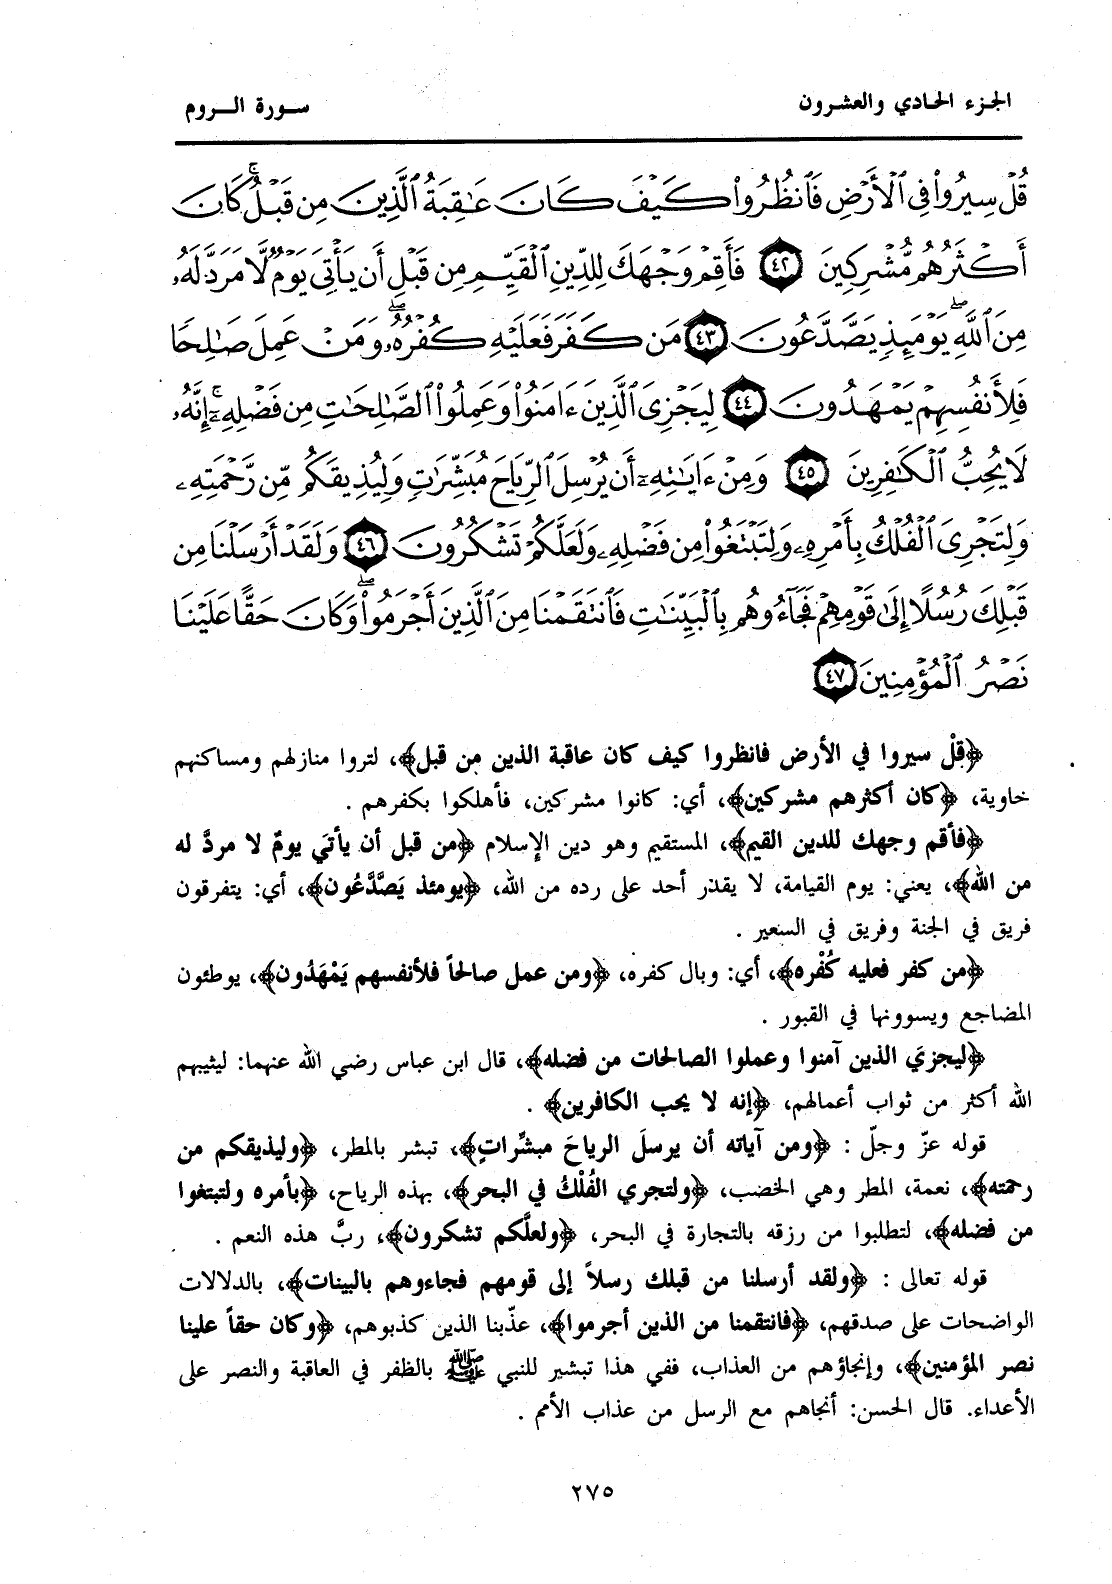 الجزء الحادي والعشرون
سورة الروم
قُلْ سِيرُوا۟ فِى ٱلْأَرْضِ فَٱنظُرُوا۟ كَيْفَ كَانَ عَـٰقِبَةُ ٱلَّذِينَ مِن قَبْلُ ۚ كَانَ
أَكْثَرُهُم مُّشْرِكِينَ ٤٢ فَأَقِمْ وَجْهَكَ لِلدِّينِ ٱلْقَيِّمِ مِن قَبْلِ أَن يَأْتِىَ يَوْمٌ لَّا مَرَدَّ لَهُۥ
مِنَ ٱللَّهِ ۖ يَوْمَئِذٍ يَصَّدَّعُونَ ٤٣ مَن كَفَرَ فَعَلَيْهِ كُفْرُهُۥ ۖ وَمَنْ عَمِلَ صَـٰلِحًا
فَلِأَنفُسِهِمْ يَمْهَدُونَ ٤٤ لِيَجْزِىَ ٱلَّذِينَ ءَامَنُوا۟ وَعَمِلُوا۟ ٱلصَّـٰلِحَـٰتِ مِن فَضْلِهِۦٓ ۚ إِنَّهُۥ
لَا يُحِبُّ ٱلْكَـٰفِرِينَ ٤٥ وَمِنْ ءَايَـٰتِهِۦٓ أَن يُرْسِلَ ٱلرِّيَاحَ مُبَشِّرَٰتٍ وَلِيُذِيقَكُم مِّن رَّحْمَتِهِۦ
وَلِتَجْرِىَ ٱلْفُلْكُ بِأَمْرِهِۦ وَلِتَبْتَغُوا۟ مِن فَضْلِهِۦ وَلَعَلَّكُمْ تَشْكُرُونَ ٤٦ وَلَقَدْ أَرْسَلْنَا مِن
قَبْلِكَ رُسُلًا إِلَىٰ قَوْمِهِمْ فَجَآءُوهُم بِٱلْبَيِّنَـٰتِ فَٱنتَقَمْنَا مِنَ ٱلَّذِينَ أَجْرَمُوا۟ ۖ وَكَانَ حَقًّا عَلَيْنَا
نَصْرُ ٱلْمُؤْمِنِينَ ٤٧
﴿قلْ سيروا في الأرض فانظروا كيف كان عاقبة الذين من قبل﴾، لتروا منازلهم ومساكنهم
خاوية، ﴿كان أكثرهم مشركين﴾، أي: كانوا مشركين، فأهلكوا بكفرهم .
﴿فأقم وجهك للدين القيم﴾، المستقيم وهو دين الإسلام ﴿من قبل أن يأتيَ يومٌ لا مردَّ له
من الله﴾، يعني: يوم القيامة، لا يقدر أحد على رده من الله، ﴿يومئذ يَصَّدَّعُون﴾، أي: يتفرقون
فريق في الجنة وفريق في السعير .
﴿من كفر فعليه كُفْره﴾، أي: وبال كفره، ﴿ومن عمل صالحاً فلأنفسهم يَمْهَدُون﴾، يوطئون
المضاجع ويسوونها في القبور .
﴿ليجزيَ الذين آمنوا وعملوا الصالحات من فضله﴾، قال ابن عباس رضي الله عنهما: ليثيبهم
الله أكثر من ثواب أعمالهم، ﴿إنه لا يحب الكافرين﴾ .
قوله عزّ وجلّ : ﴿ومن آياته أن يرسلَ الرياحَ مبشِّراتٍ﴾، تبشر بالمطر، ﴿وليذيقكم من
رحمته﴾، نعمة، المطر وهي الخصب، ﴿ولتجري الفُلْكُ في البحر﴾، بهذه الرياح، ﴿بأمره ولتبتغوا
من فضله﴾، لتطلبوا من رزقه بالتجارة في البحر، ﴿ولعلَّكم تشكرون﴾، ربَّ هذه النعم .
قوله تعالى : ﴿ولقد أرسلنا من قبلك رسلاً إلى قومهم فجاءوهم بالبينات﴾، بالدلالات
الواضحات على صدقهم، ﴿فانتقمنا من الذين أجرموا﴾، عذّبنا الذين كذبوهم، ﴿وكان حقاً علينا
نصر المؤمنين﴾، وإنجاؤهم من العذاب، ففي هذا تبشير للنبي ﷺ بالظفر في العاقبة والنصر على
الأعداء. قال الحسن: أنجاهم مع الرسل من عذاب الأمم .
٢٧٥